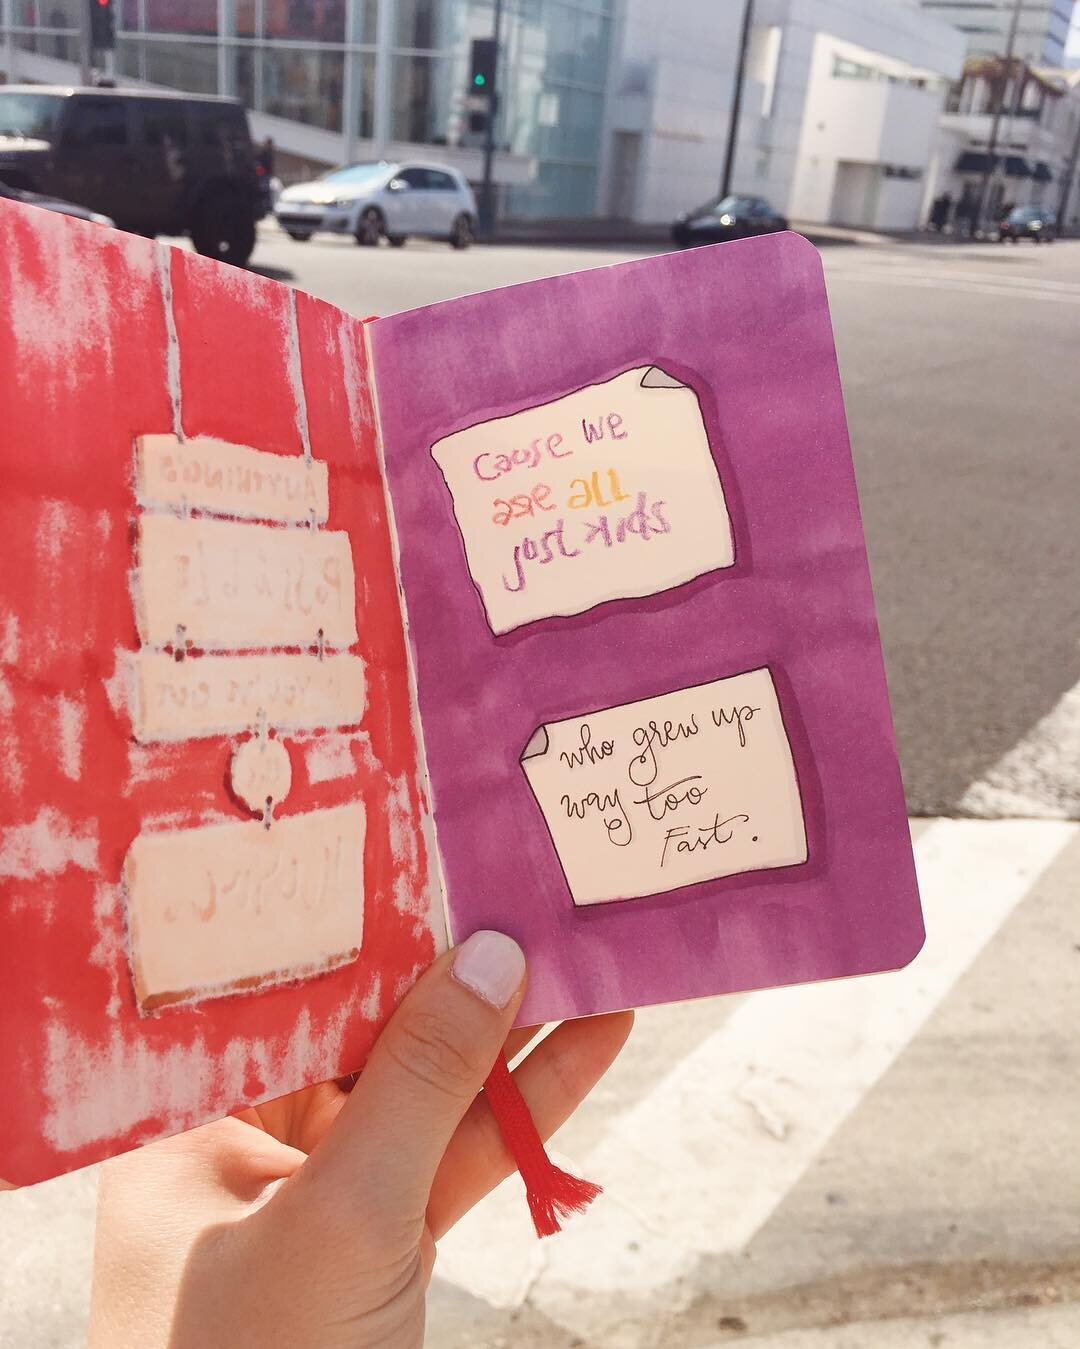 ANYTHING'S
POSSIBLE
Cause we
are all
just kids
who grew up
way too
Fast.